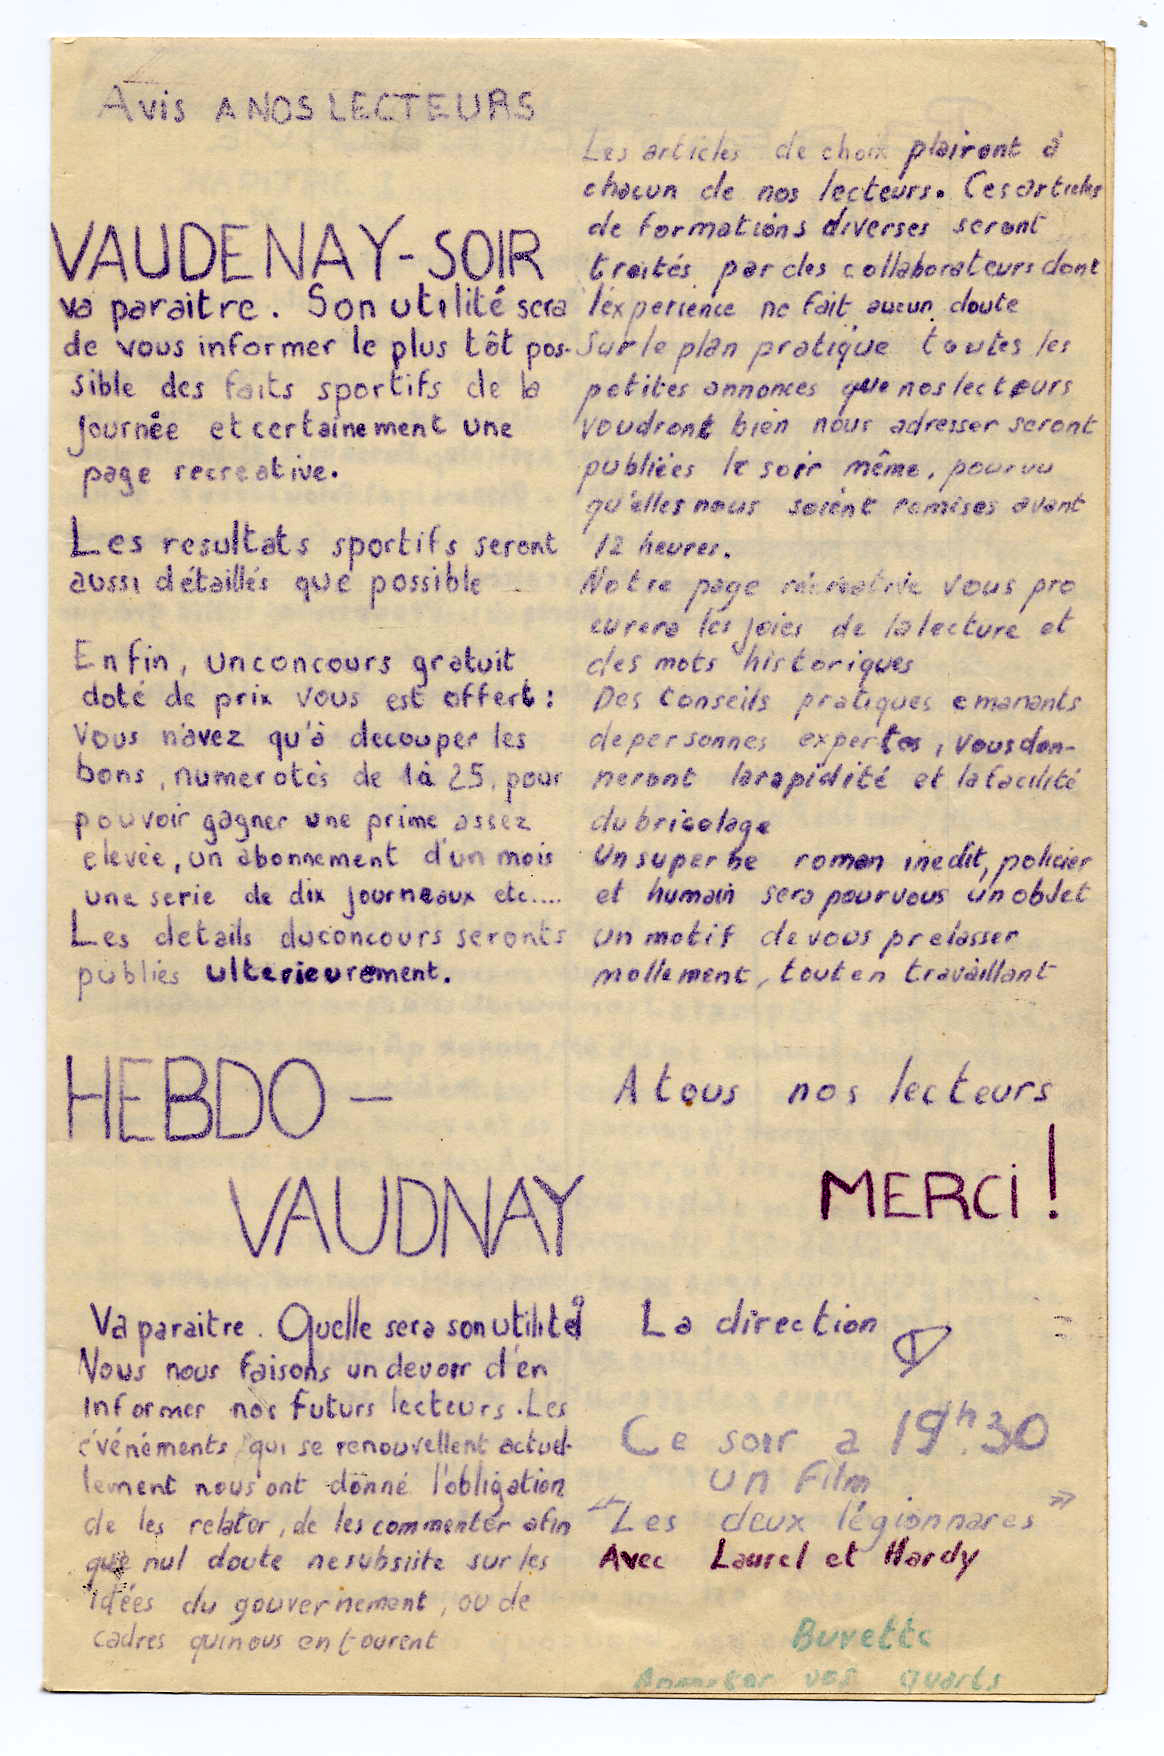 Avis A NOS LECTEURS
VAUDENAY-SOIR
va paraitre. Son utilité sera
de vous informer le plus tôt pos-
sible des faits sportifs de la
journée et certainement une
page recreative.
Les resultats sportifs seront
aussi détaillés que possible
Enfin, un concours gratuit
doté de prix vous est offert:
Vous n'avez qu'à decouper les
bons, numerotès de 1 à 25, pour
pouvoir gagner une prime assez
elevée, un abonnement d'un mois
une serie de dix journeaux etc....
Les details du concours seronts
publiés ulterieurement.
HEBDO -
VAUDNAY
Va paraitre. Quelle sera son utilité?
Nous nous faisons un devoir d'en
informer nos futurs lecteurs. Les
évènéments qui se renouvellent actuel-
lement nous ont donné l'obligation
de les relater, de les commenter afin
que nul doute ne subsiste sur les
idées du gouvernement, ou de
cadres qui nous entourent
Les articles de choix plairont à
chacun de nos lecteurs. Ces articles
de formations diverses seront
traités par des collaborateurs dont
l'éxperience ne fait aucun doute
Sur le plan pratique toutes les
petites annonces que nos lecteurs
voudront bien nous adresser seront
publiées le soir même, pourvu
qu'elles nous soient remises avant
12 heures.
Notre page récréative vous pro
curera les joies de la lecture et
des mots historiques
Des conseils pratiques emanants
de personnes expertes, vous don-
neront la rapidité et la facilité
du bricolage
Un superbe roman inedit, policier
et humain sera pour vous un objet
un motif de vous prelasser
mollement, tout en travaillant
A tous nos lecteurs
MERCI!
La direction
Ce soir a 19h30
un Film
"Les deux légionnares"
Avec Laurel et Hardy
Buvette
vos quarts